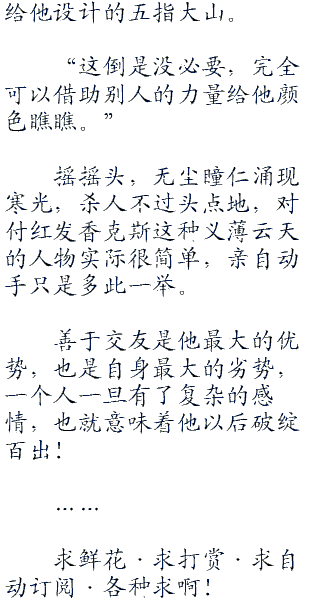 给他设计的五指大山。
“这倒是没必要，完全
可以借助别人的力量给他颜
色瞧瞧。”
摇摇头，无尘瞳仁涌现
寒光，杀人不过头点地，对
付红发香克斯这种义薄云天
的人物实际很简单，亲自动
手只是多此一举。
善于交友是他最大的优
势，也是自身最大的劣势，
一个人一旦有了复杂的感
情，也就意味着他以后破绽
百出！
……
求鲜花·求打赏·求自
动订阅·各种求啊！